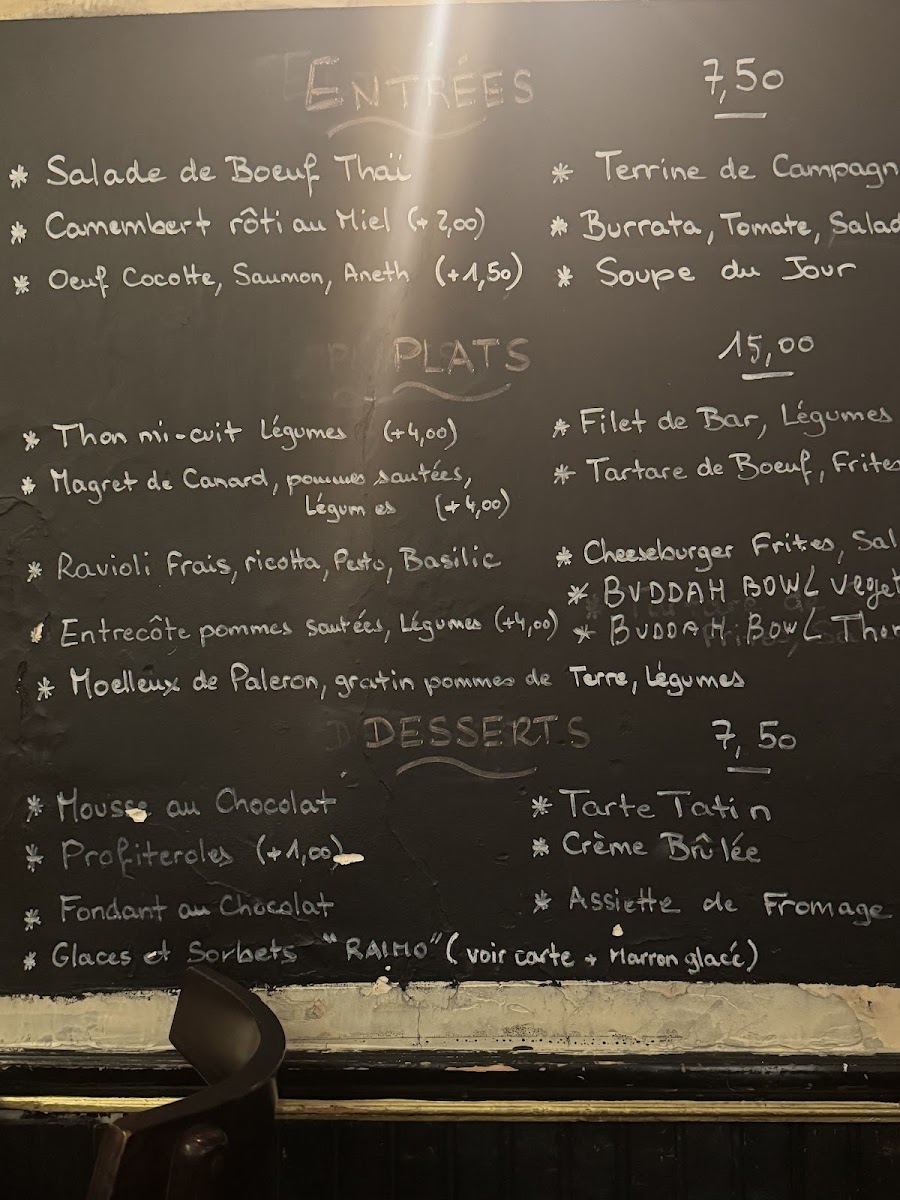 ENTRÉES 7,50
* Salade de Boeuf Thaï * Terrine de Campagn
* Camembert rôti au Miel (+2,00) * Burrata, Tomate, Salad
* Oeuf Cocotte, Saumon, Aneth (+1,50) * Soupe du Jour
PLATS 15,00
* Thon mi-cuit Légumes (+4,00) * Filet de Bar, Légumes
* Magret de Canard, pommes sautées, * Tartare de Boeuf, Frites
Légumes (+4,00)
* Ravioli Frais, ricotta, Pesto, Basilic * Cheeseburger Frites, Sal
* BUDDAH BOWL veget
* Entrecôte pommes sautées, Légumes (+4,00) * BUDDAH BOWL Thon
* Moelleux de Paleron, gratin pommes de Terre, Légumes
DESSERTS 7,50
* Mousse au Chocolat * Tarte Tatin
* Profiteroles (+1,00) * Crème Brûlée
* Fondant au Chocolat * Assiette de Fromage
* Glaces et Sorbets "RAIMO" (voir carte + Marron glacé)